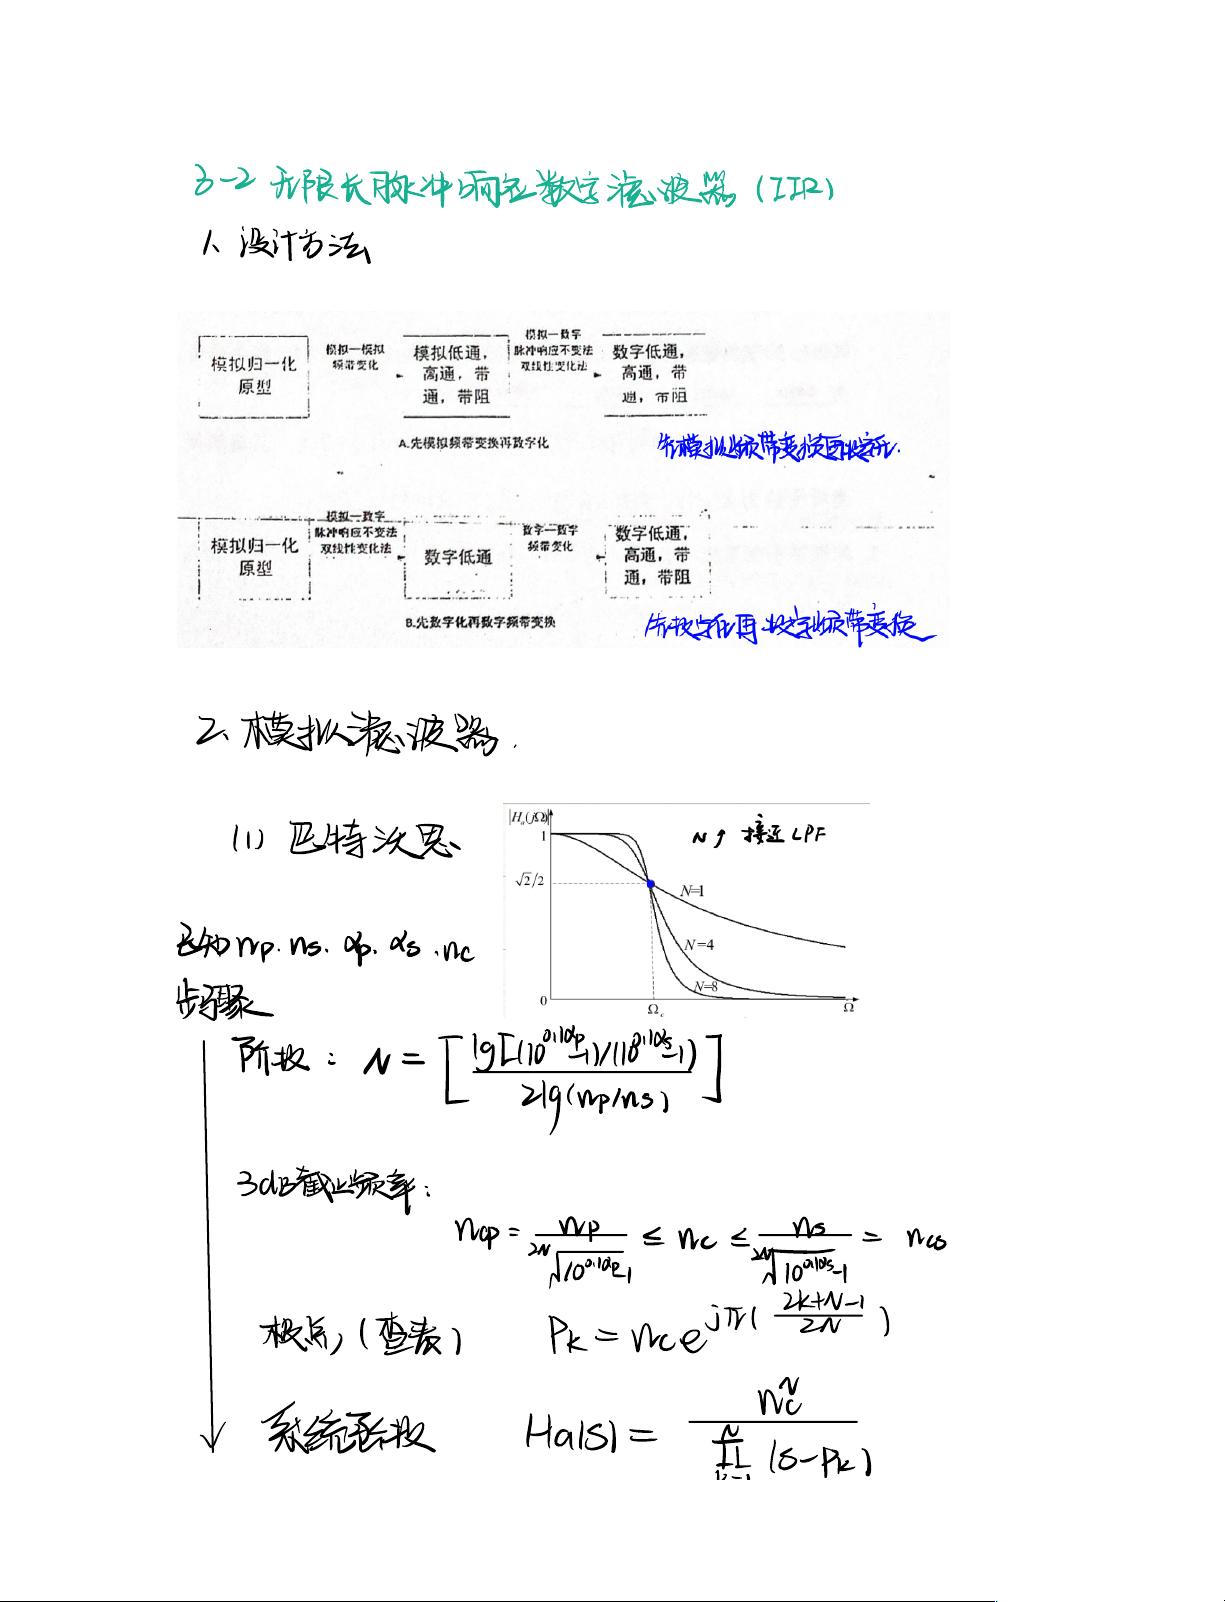 3-2 无限长脉冲响应数字滤波器 (IIR)
1、设计方法
模拟归一化
原型
模拟—模拟
频带变化
模拟低通，
高通，带
通，带阻
模拟—数字
脉冲响应不变法
双线性变化法
数字低通，
高通，带
通，带阻
A.先模拟频带变换再数字化
先模拟频带变换再数字化.
模拟归一化
原型
模拟—数字
脉冲响应不变法
双线性变化法
数字低通
数字—数字
频带变化
数字低通，
高通，带
通，带阻
B.先数字化再数字频带变换
先数字化再数字频带变换
2、模拟滤波器.
(1) 巴特沃思
|Ha(jΩ)|
1
√2/2
0
N=1
N=4
N=8
Ωc
Ω
N↑ 接近LPF
已知Ωp. Ωs. αp. αs. Ωc
步骤
阶数: N = [lg[(10^0.1αp-1)/(10^0.1αs-1)] / 2lg(Ωp/Ωs)]
3dB截止频率:
Ωcp = Ωp / 2N√(10^0.1αp-1) ≤ Ωc ≤ Ωs / 2N√(10^0.1αs-1) = Ωcs
极点, (查表) Pk = Ωc e^jπ((2k+N-1)/2N)
系统函数 Ha(s) = Ωc^N / ∏_{k=1}^{N} (s-Pk)